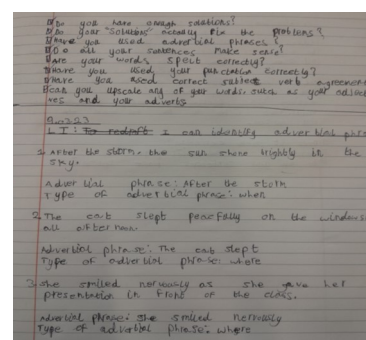 Do you have enough solutions?
Do your solutions actually fix the problems?
Have you used adverbial phrases?
Do all your sentences make sense?
Are your words spelt correctly?
Have you used your punctuation correctly?
Have you used correct subject verb agreement
Can you upscale any of your words, such as your adject
ves and your adverbs
LT: To redraft I can identify adverbial phra
1. After the storm, the sun shone brightly in the
sky.
Adverbial phrase: After the storm
Type of adverbial phrase: when
2. The cat slept peacefully on the windows
all afternoon.
Adverbial phrase: The cat slept
Type of adverbial phrase: where
3. She smiled nervously as she gave her
presentation in front of the class.
Adverbial phrase: She smiled nervously
Type of adverbial phrase: where